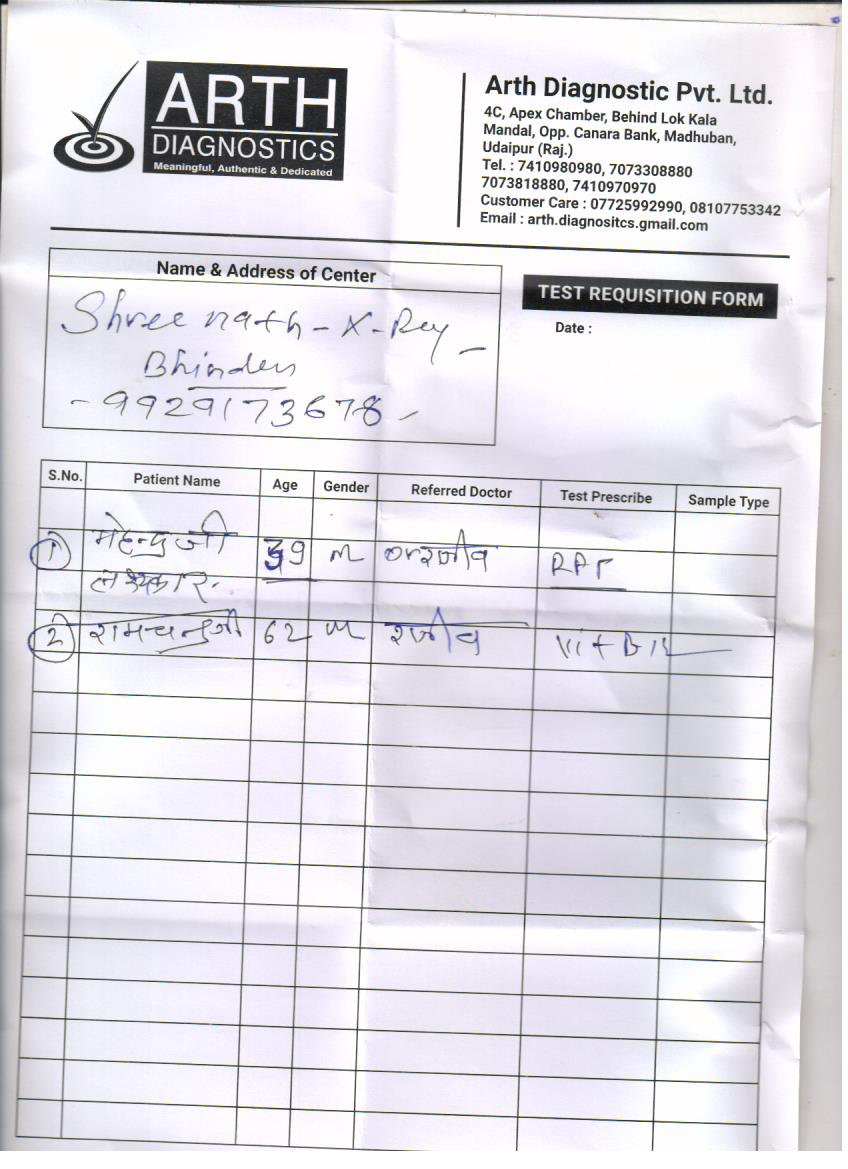 ARTH
DIAGNOSTICS
Meaningful, Authentic & Dedicated
Arth Diagnostic Pvt. Ltd.
4C, Apex Chamber, Behind Lok Kala
Mandal, Opp. Canara Bank, Madhuban,
Udaipur (Raj.)
Tel. : 7410980980, 7073308880
7073818880, 7410970970
Customer Care : 07725992990, 08107753342
Email : arth.diagnositcs.gmail.com
Name & Address of Center
Shree nath - X - Rey -
Bhinder
- 9929173678 -
TEST REQUISITION FORM
Date :
S.No. Patient Name Age Gender Referred Doctor Test Prescribe Sample Type
1 39 M
2 रामचन्द्रजी 62 M Vit B12